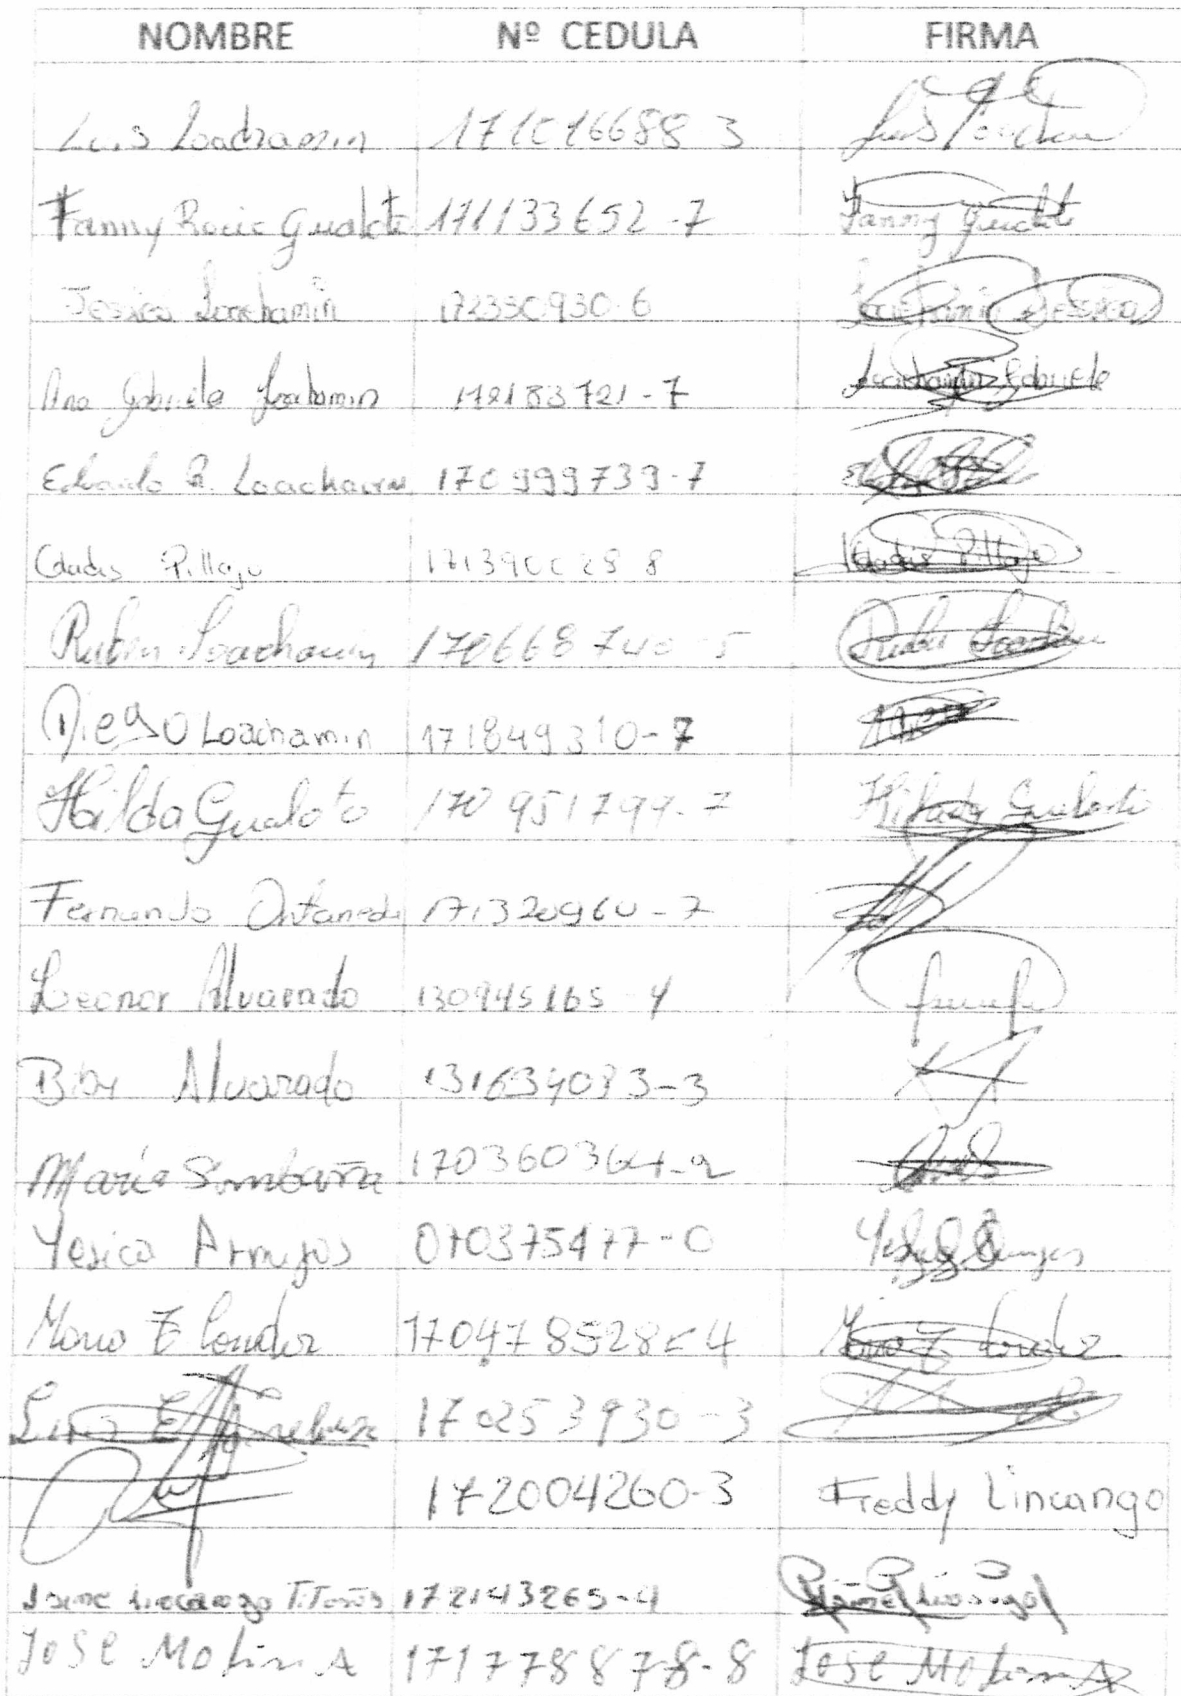 NOMBRE Nº CEDULA FIRMA
Luis Loachamin 171016688 3 Luis
Fanny Rocio Gualoto 171133652-7 Fanny Gualoto
Jessica Loachamin 172350930-6 Loachamin Jessica
Ana Gabriela Loachamin 172183721-7 Loachamin Gabriela
Eduardo R. Loachamin 170999739-7
Gladis Pillajo 171390028 8 Gladis Pillajo
Rubin Loachamin 170668740-5
Diego Loachamin 171849310-7
Hilda Gualoto 170951799-7 Hilda Gualoto
Fernando Ontaneda 171320960-7
Leonor Alvarado 130945165-4
Biby Alvarado 131634093-3
María Simbaña 170360364-2
Yesica Armijos 070375477-0 Armijos
170478528 4
170253930-3
172004260-3 Freddy Lincango
172143265-4
Jose Molina A 171778878-8 Jose Molina A